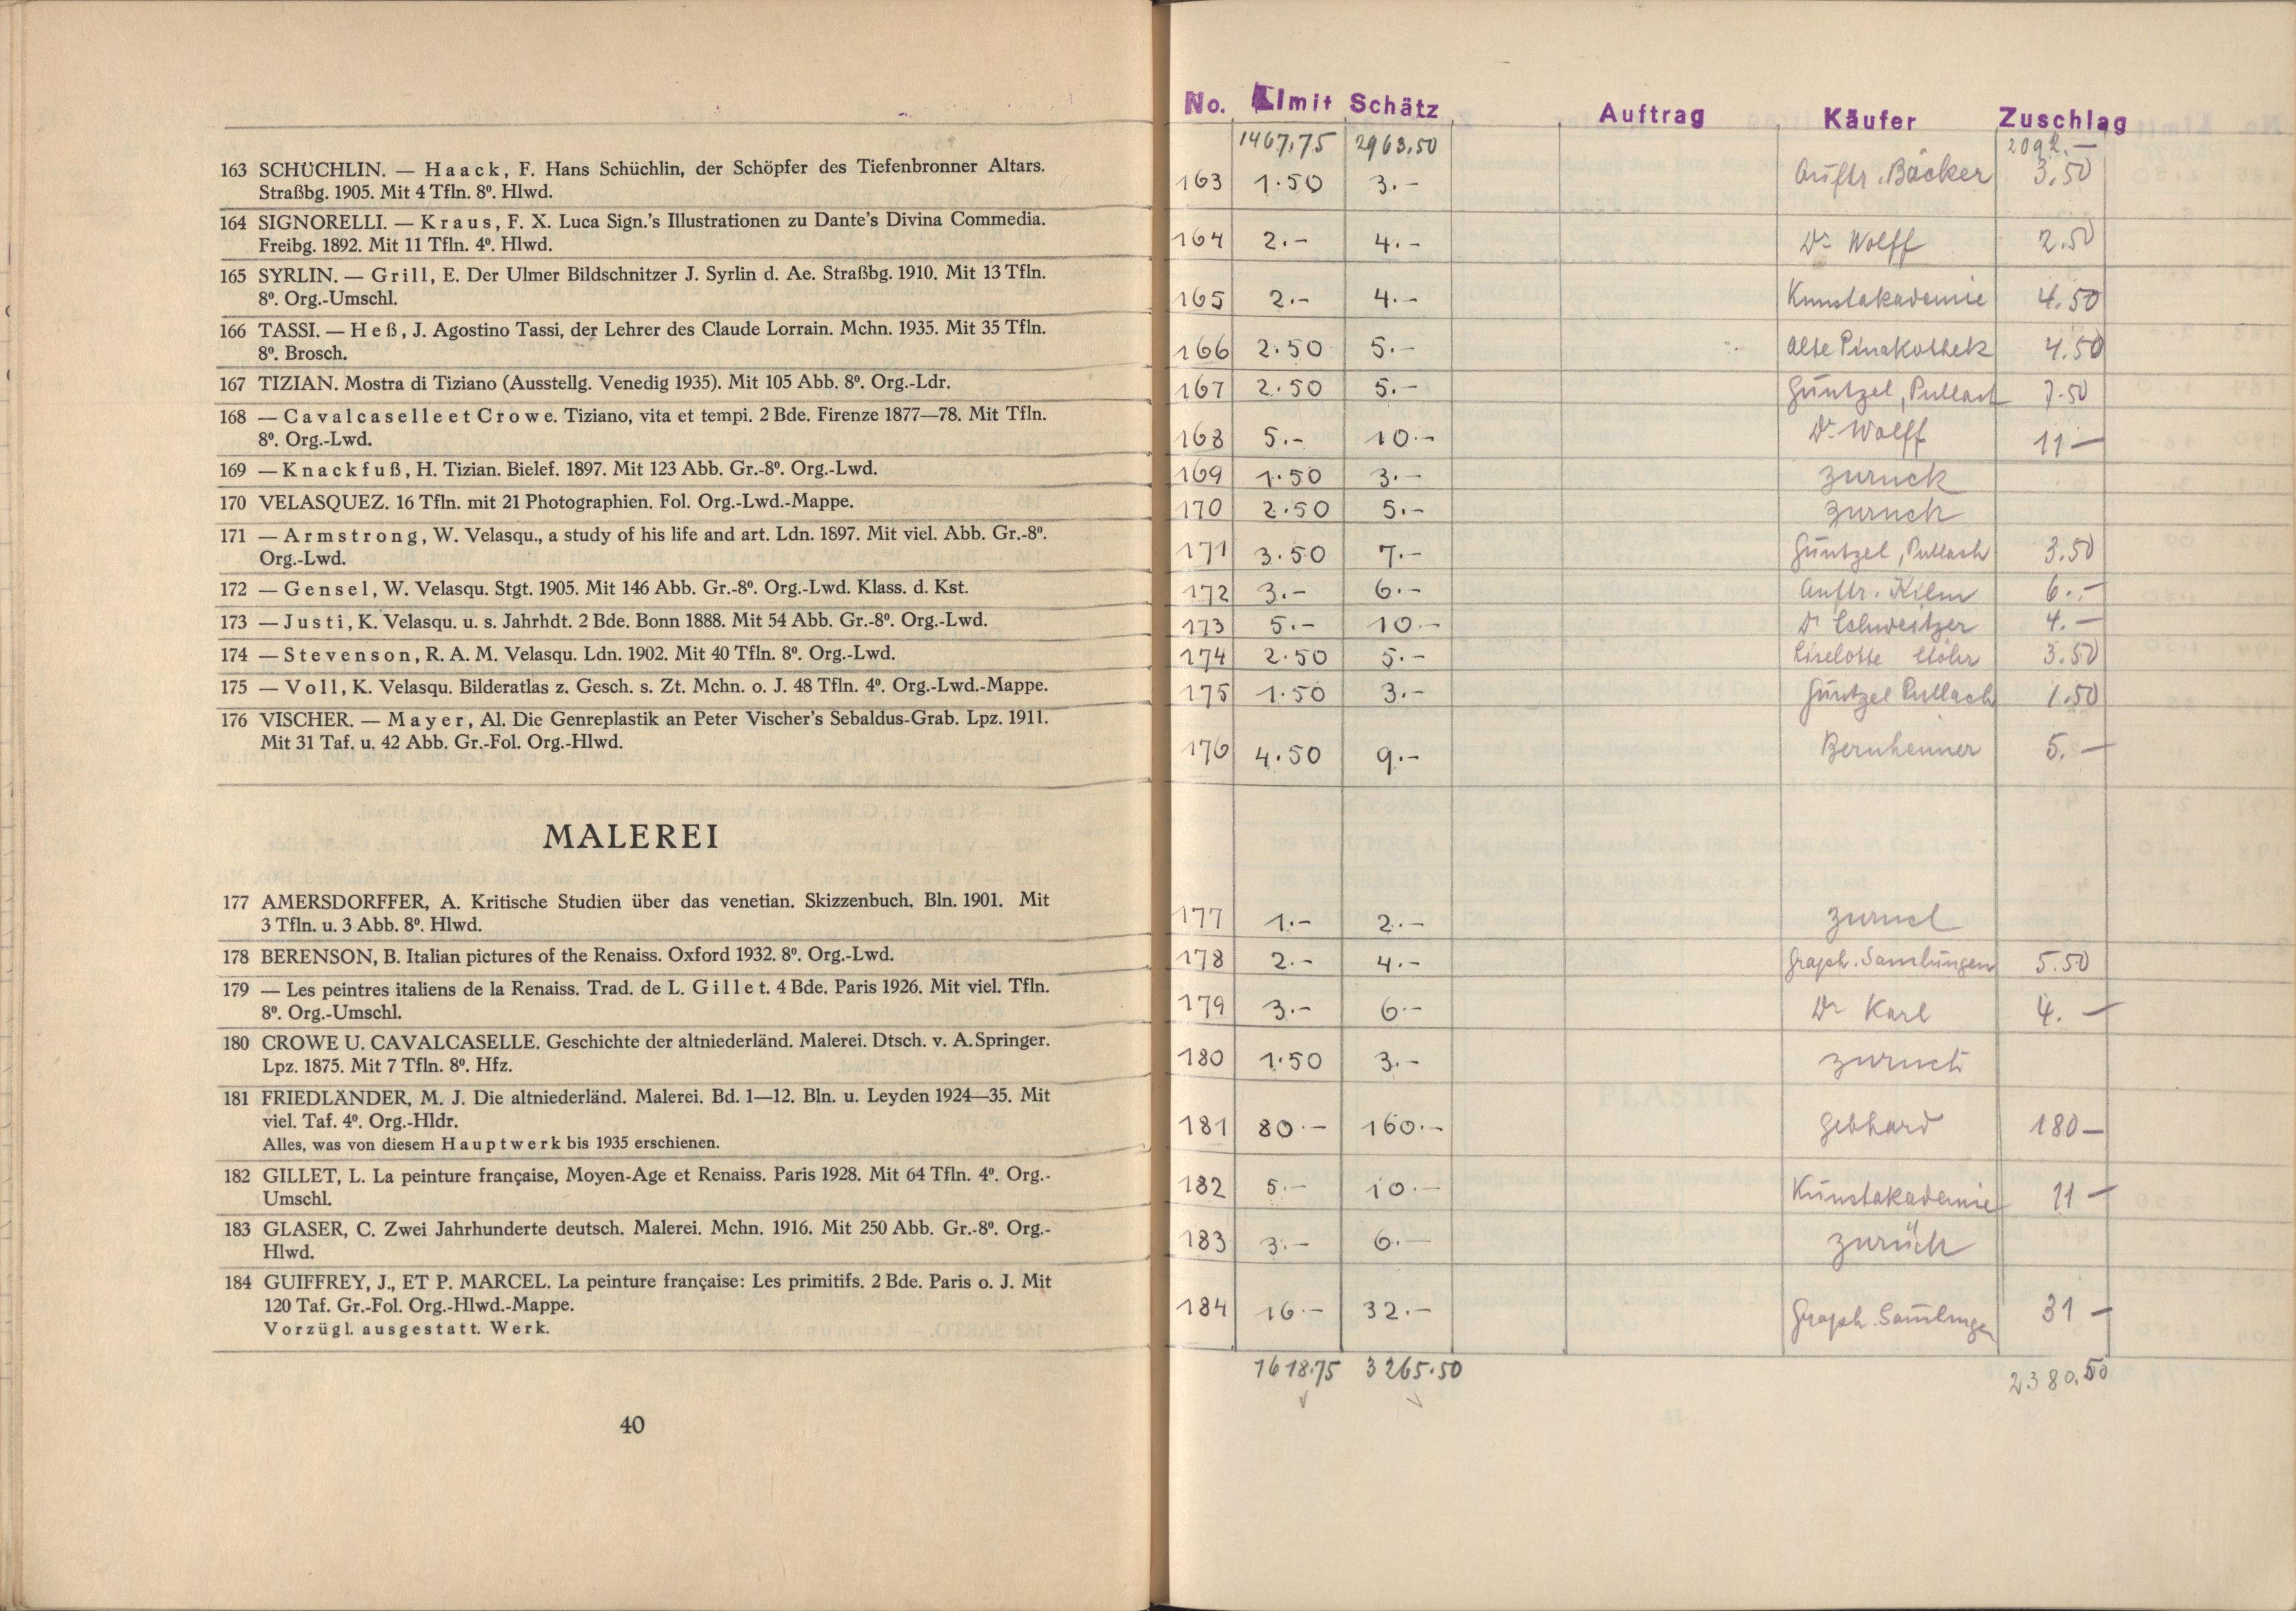 163 SCHÜCHLIN. — Haack, F. Hans Schüchlin, der Schöpfer des Tiefenbronner Altars.
Straßbg. 1905. Mit 4 Tfln. 8º. Hlwd.
164 SIGNORELLI. — Kraus, F. X. Luca Sign.'s Illustrationen zu Dante's Divina Commedia.
Freibg. 1892. Mit 11 Tfln. 4º. Hlwd.
165 SYRLIN. — Grill, E. Der Ulmer Bildschnitzer J. Syrlin d. Ae. Straßbg. 1910. Mit 13 Tfln.
8º. Org.-Umschl.
166 TASSI. — Heß, J. Agostino Tassi, der Lehrer des Claude Lorrain. Mchn. 1935. Mit 35 Tfln.
8º. Brosch.
167 TIZIAN. Mostra di Tiziano (Ausstellg. Venedig 1935). Mit 105 Abb. 8º. Org.-Ldr.
168 — Cavalcaselle et Crowe. Tiziano, vita et tempi. 2 Bde. Firenze 1877—78. Mit Tfln.
8º. Org.-Lwd.
169 — Knackfuß, H. Tizian. Bielef. 1897. Mit 123 Abb. Gr.-8º. Org.-Lwd.
170 VELASQUEZ. 16 Tfln. mit 21 Photographien. Fol. Org.-Lwd.-Mappe.
171 — Armstrong, W. Velasqu., a study of his life and art. Ldn. 1897. Mit viel. Abb. Gr.-8º.
Org.-Lwd.
172 — Gensel, W. Velasqu. Stgt. 1905. Mit 146 Abb. Gr.-8º. Org.-Lwd. Klass. d. Kst.
173 — Justi, K. Velasqu. u. s. Jahrhdt. 2 Bde. Bonn 1888. Mit 54 Abb. Gr.-8º. Org.-Lwd.
174 — Stevenson, R. A. M. Velasqu. Ldn. 1902. Mit 40 Tfln. 8º. Org.-Lwd.
175 — Voll, K. Velasqu. Bilderatlas z. Gesch. s. Zt. Mchn. o. J. 48 Tfln. 4º. Org.-Lwd.-Mappe.
176 VISCHER. — Mayer, Al. Die Genreplastik an Peter Vischer's Sebaldus-Grab. Lpz. 1911.
Mit 31 Taf. u. 42 Abb. Gr.-Fol. Org.-Hlwd.
MALEREI
177 AMERSDORFFER, A. Kritische Studien über das venetian. Skizzenbuch. Bln. 1901. Mit
3 Tfln. u. 3 Abb. 8º. Hlwd.
178 BERENSON, B. Italian pictures of the Renaiss. Oxford 1932. 8º. Org.-Lwd.
179 — Les peintres italiens de la Renaiss. Trad. de L. Gillet. 4 Bde. Paris 1926. Mit viel. Tfln.
8º. Org.-Umschl.
180 CROWE U. CAVALCASELLE. Geschichte der altniederländ. Malerei. Dtsch. v. A. Springer.
Lpz. 1875. Mit 7 Tfln. 8º. Hfz.
181 FRIEDLÄNDER, M. J. Die altniederländ. Malerei. Bd. 1—12. Bln. u. Leyden 1924—35. Mit
viel. Taf. 4º. Org.-Hldr.
Alles, was von diesem Hauptwerk bis 1935 erschienen.
182 GILLET, L. La peinture française, Moyen-Age et Renaiss. Paris 1928. Mit 64 Tfln. 4º. Org.-
Umschl.
183 GLASER, C. Zwei Jahrhunderte deutsch. Malerei. Mchn. 1916. Mit 250 Abb. Gr.-8º. Org.-
Hlwd.
184 GUIFFREY, J., ET P. MARCEL. La peinture française: Les primitifs. 2 Bde. Paris o. J. Mit
120 Taf. Gr.-Fol. Org.-Hlwd.-Mappe.
Vorzügl. ausgestatt. Werk.
40
No. Limit Schätz Auftrag Käufer Zuschlag
1467,75 2963,50 2092.—
163 1.50 3.- Auftr. Bäcker 3.50
164 2.- 4.- Dr Wolff 2.50
165 2.- 4.- Kunstakademie 4.50
166 2.50 5.- Alte Pinakothek 4.50
167 2.50 5.- Güntzel, Pullach 7.50
168 5.- 10.- Dr Wolff 11—
169 1.50 3.- zurück
170 2.50 5.- zurück
171 3.50 7.- Güntzel, Pullach 3.50
172 3.- 6.- Auftr. Kilm 6.-
173 5.- 10.- Dr Schweitzer 4.—
174 2.50 5.- Liselotte Stöhr 3.50
175 1.50 3.- Güntzel Pullach 1.50
176 4.50 9.- Bernheimer 5.—
177 1.- 2.- zurück
178 2.- 4.- Graph. Samlungen 5.50
179 3.- 6.- Dr Karl 4.—
180 1.50 3.- zurück
181 80.- 160.- Gebhard 180—
182 5.- 10.- Kunstakademie 11—
183 3.- 6.- zurück
184 16.- 32.- Graph. Samlungen 31—
1618.75 3265.50 2380.50